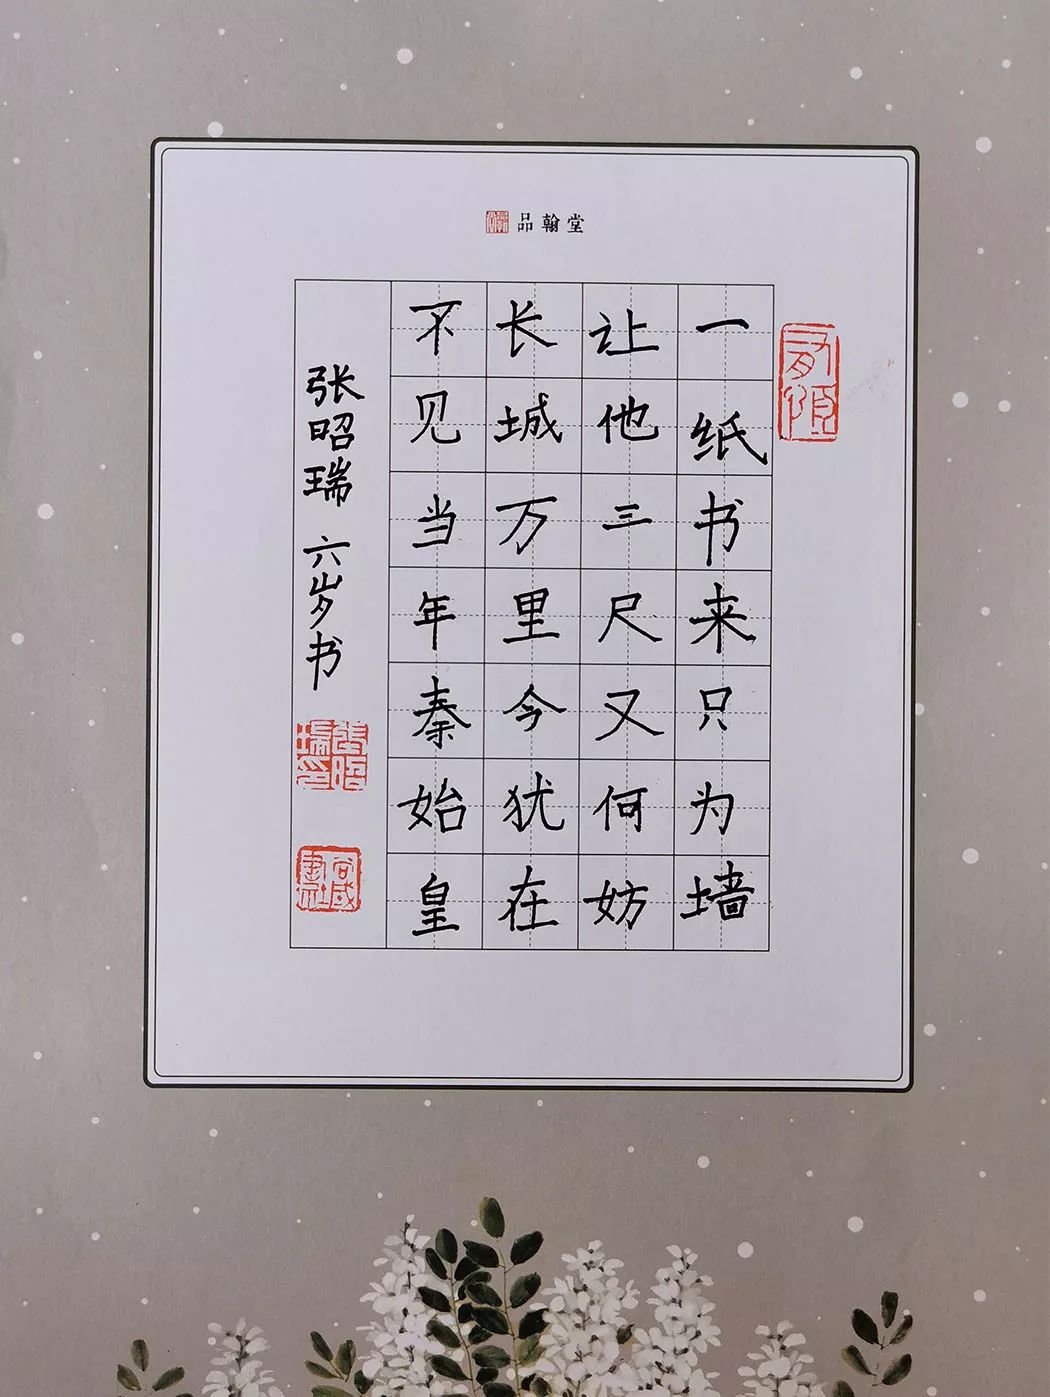 品翰堂
一纸书来只为墙
让他三尺又何妨
长城万里今犹在
不见当年秦始皇
张昭瑞 六岁书
张昭瑞印